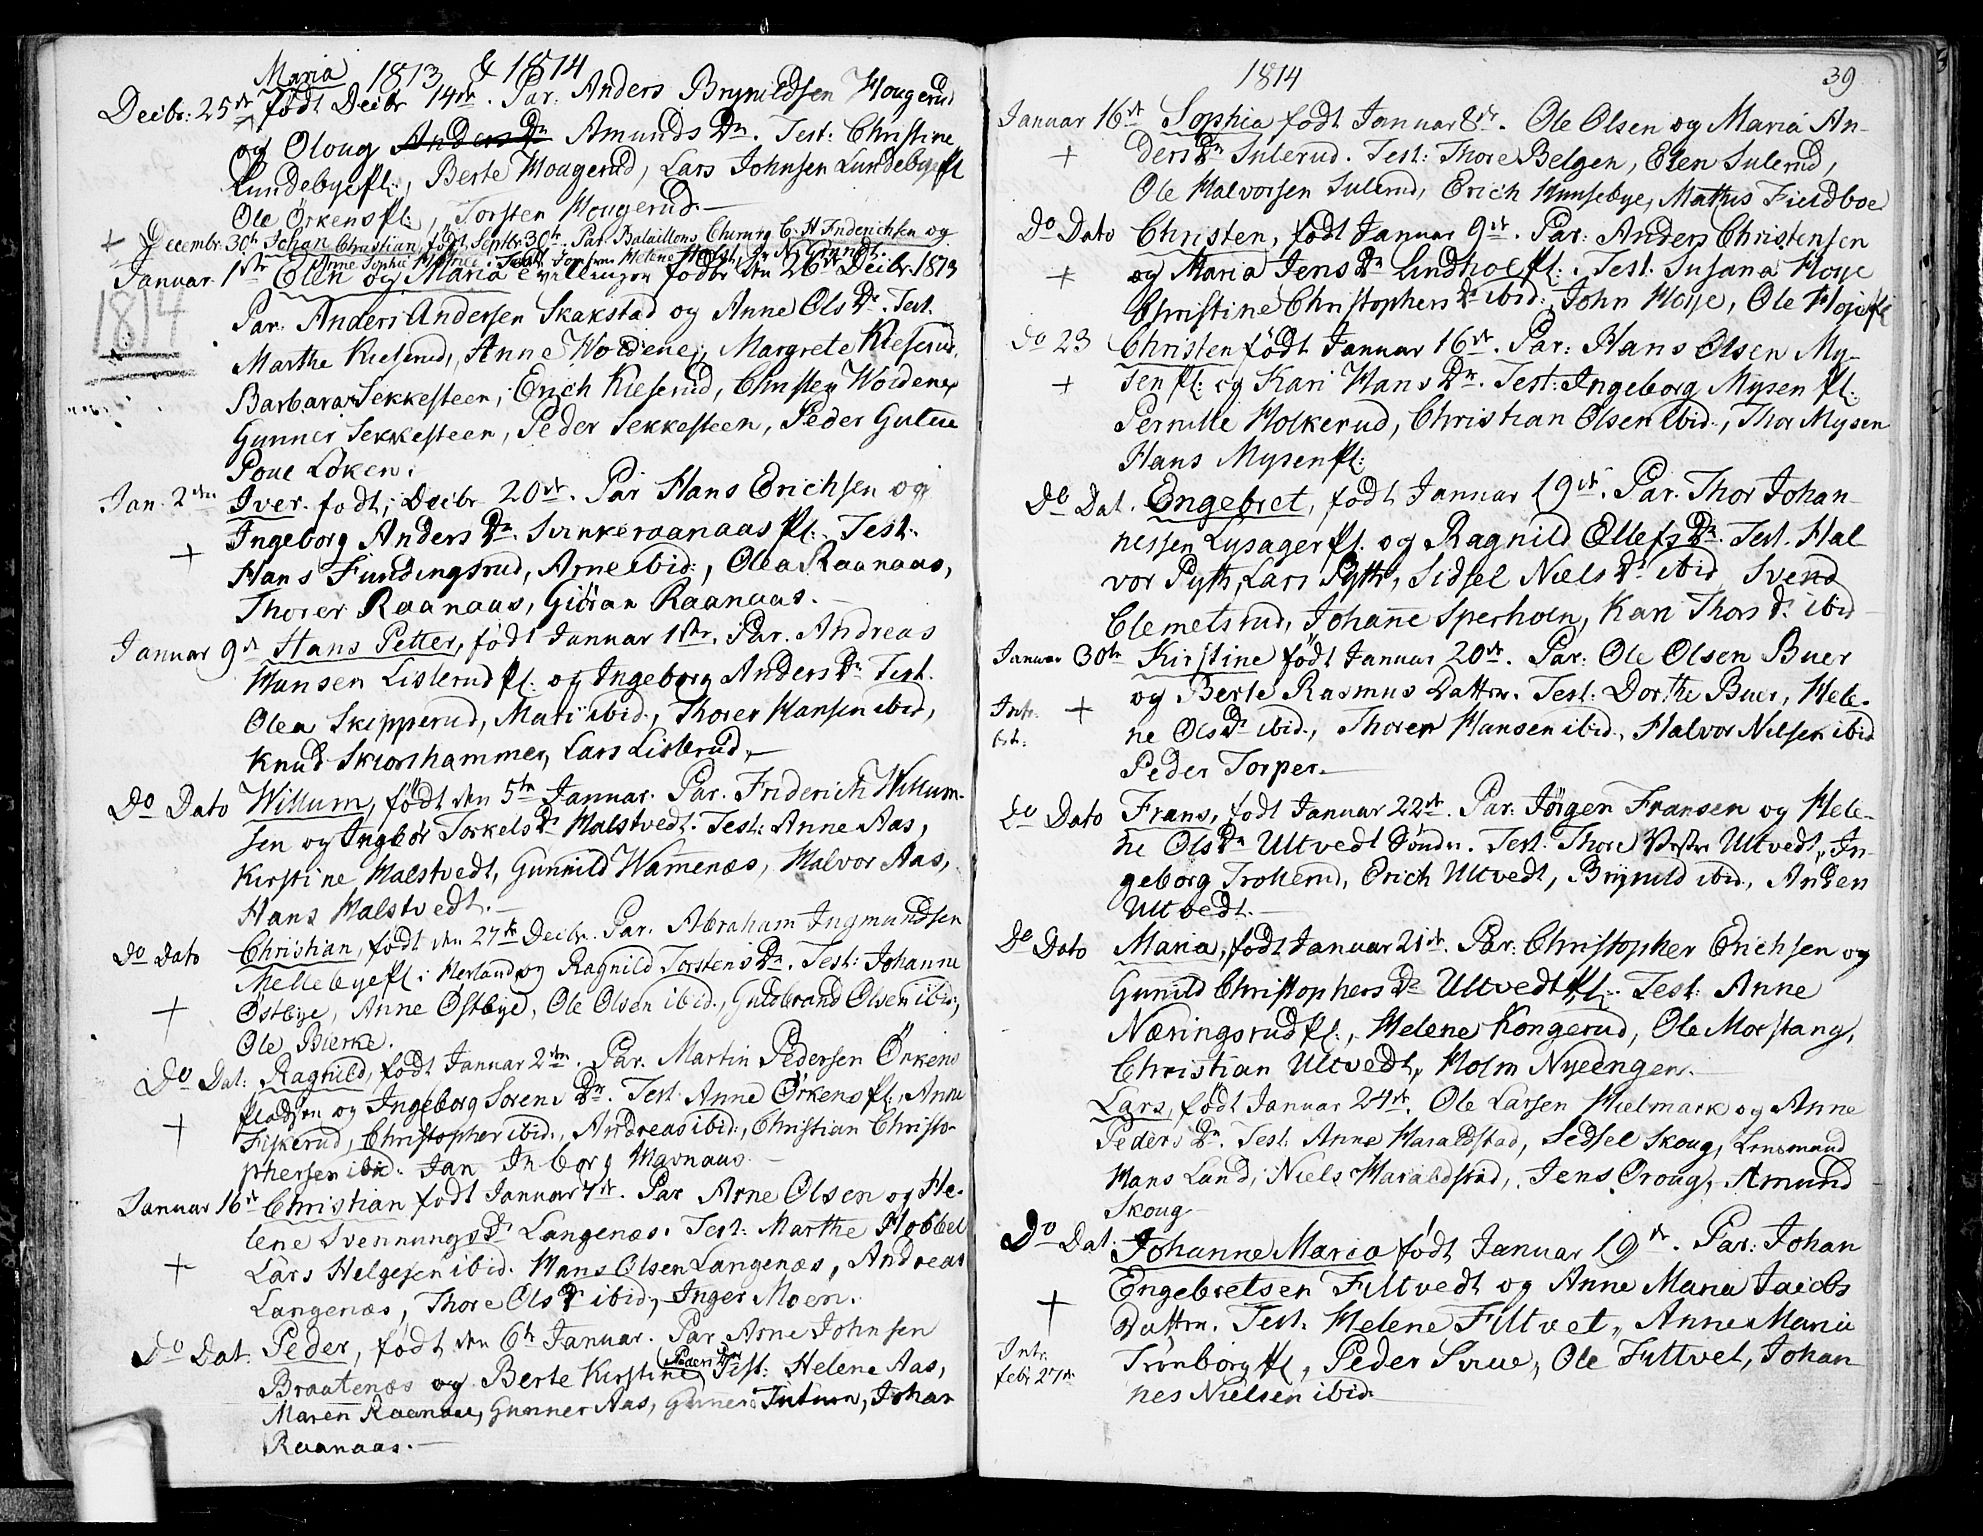 1813 & 1814
Maria
Decibr: 25de født Decibr 14de. Par: Anders Brynildsen Hougerud
og Oloug Anders Dr Amunds Dr. Test: Christine
Lundebyepl:, Berte Hougerud, Lars Johnsen Lundebyepl
Ole Örkenspl:, Torsten Hougerud.
+ Decembr. 30te Johan Christian, født Septbr 30te. Par. Bataillons Chirurg C. H. Friderichsen og
Anne Sophie
Januar 1ste Elen og Maria tvillinger födte den 26de Decibr. 1813
1814
Par. Anders Andersen Skakstad og Anne Ols Dr. Test.
Marthe Kieserud, Anne Woidene, Margrete Kieserud,
Barbara Sekkesteen, Erich Kieserud, Christen Woidene,
Gunner Sekkesteen, Peder Sekkesteen, Peder Gutue
Poue Löken.
Jan. 2den Iver født, Decibr 20de. Par Hans Erichsen og
Ingeborg Anders Dr. Svinkeraanaas Pl:. Test.
+
Hans Fundingsrud, Arne ibid:, Olea Raanaas,
Thorer Raanaas, Giöran Raanaas.
Januar 9de Hans Petter, født Januar 1ste. Par. Andreas
Hansen Listerud pl: og Ingeborg Anders Dr. Test.
Olea Skipperud, Mari ibid., Thorer Hansen ibid,
Knud Skionhammer, Lars Listerud.
Do Dato Willum, født den 5te Januar. Par. Friderich Willum-
sen og Ingbör Torkels Dr Halstvedt. Test: Anne Aas,
Kirstine Halstvedt, Gunnild Wamenæs, Halvor Aas,
Hans Halstvedt.
Do Dato Christian, født den 27de Decbr. Par. Abraham Ingmundsen
Mellebyepl: Herland og Ragnild Torstens Dr. Test: Johanne
+ Östbye, Anne Östbye, Ole Olsen ibid., Guldbrand Olsen ibid:,
Ole Bierke.
Do Dat: Ragnild, født Januar 2den. Par. Martin Pedersen Örkens
pladsen og Ingeborg Sorens Dr. Test Anne Örkens pl:, Anne
+ Fiskerud, Christopher ibid., Andreas ibid:, Christian Christo-
phersen ibid. Jan Inborg Mavnaas.
Januar 16de Christian født Januar 7de. Par Arne Olsen og He-
lene Svennungs Dr Langenæs. Test: Marthe Hobbel
+ Lars Helgesen ibid. Hans Olsen Langenæs, Andreas
Langenæs, Thore Ols Dr ibid, Inger Moen.
Do Dat: Peder, født den 6te Januar. Par Arne Johnsen
Braatenæs og Berte Kirstine Peders Dr Test: Helene Aas,
Maren Raanaas, Gunner Aas, Gunner Tutura, Johan
Raanaas.
1814 39
Januar 16de Sophia født Januar 8de. Ole Olsen og Maria An-
+ ders Dr Sulerud. Test: Thore Belgen, Elen Sulerud,
Ole Halvorsen Sulerud, Erich Hunsebye, Mathis Fieldboe
Do Dato Christen, født Januar 9de. Par: Anders Christensen
+ og Maria Jens Dr Lindhoel pl:. Test. Susana Hoye
Christine Christophers Dr ibid:, John Hoye, Ole Hoiepl
Do 23 Christen født Januar 16de. Par: Hans Olsen My-
+ sen pl: og Kari Hans Dr. Test: Ingeborg Mysen pl:
Pernille Holkerud, Christian Olsen ibid., Thor Mysen
Hans Mysen pl:
Do Dat. Engebret, født Januar 19de. Par. Thor Johan-
nessen Lysager pl. og Ragnild Ellefs Dr. Test. Hal
vor Pyth, Lars Pyth, Sidsel Niels Dr ibid, Svend
Clemetsrud, Johane Sperhoen, Kari Thors Dr ibid
Januar 30te Kirstine født Januar 20de. Par: Ole Olsen Buer
Intr. + og Berte Rasmus Dattr. Test: Dorthe Buer, Hele-
ne Ols Dr ibid., Thorer Hansen ibid., Halvor Nilsen ibid
Peder Torper.
Do Dato Frans, født Januar 22de. Par: Jörgen Fransen og Hele-
ne Ols Dr Ultvedt Söndr. Test. Thore Vestre Ultvedt, In-
geborg Trollerud, Erich Ultvedt, Brynild ibid., Anders
Ultvedt.
Do Dato Maria, født Januar 21de. Par: Christopher Erichsen og
Gunild Christophers Dr Ultvedt pl:. Test: Anne
Næringsrud pl:, Helene Kongerud, Ole Morstang,
Christian Ultvedt, Holm Nyeengen.
Lars, født Januar 24de. Ole Larsen Hielmark og Anne
Peders Dr. Test: Anne Haraldstad, Sidsel Skoug, Lensmand
Hans Lund, Niels Haraldstad, Jens Oroug, Amund
Skoug
Do Dat. Johanne Maria født Januar 19de. Par: Johan
Engebretsen Filtvedt og Anne Maria Jacobs
+ Dattrn. Test. Helene Filtvet, Anne Maria
Intr. Trönborg pl, Peder Svue, Ole Filtvet, Johan
febr 27de nes Nielsen ibid.